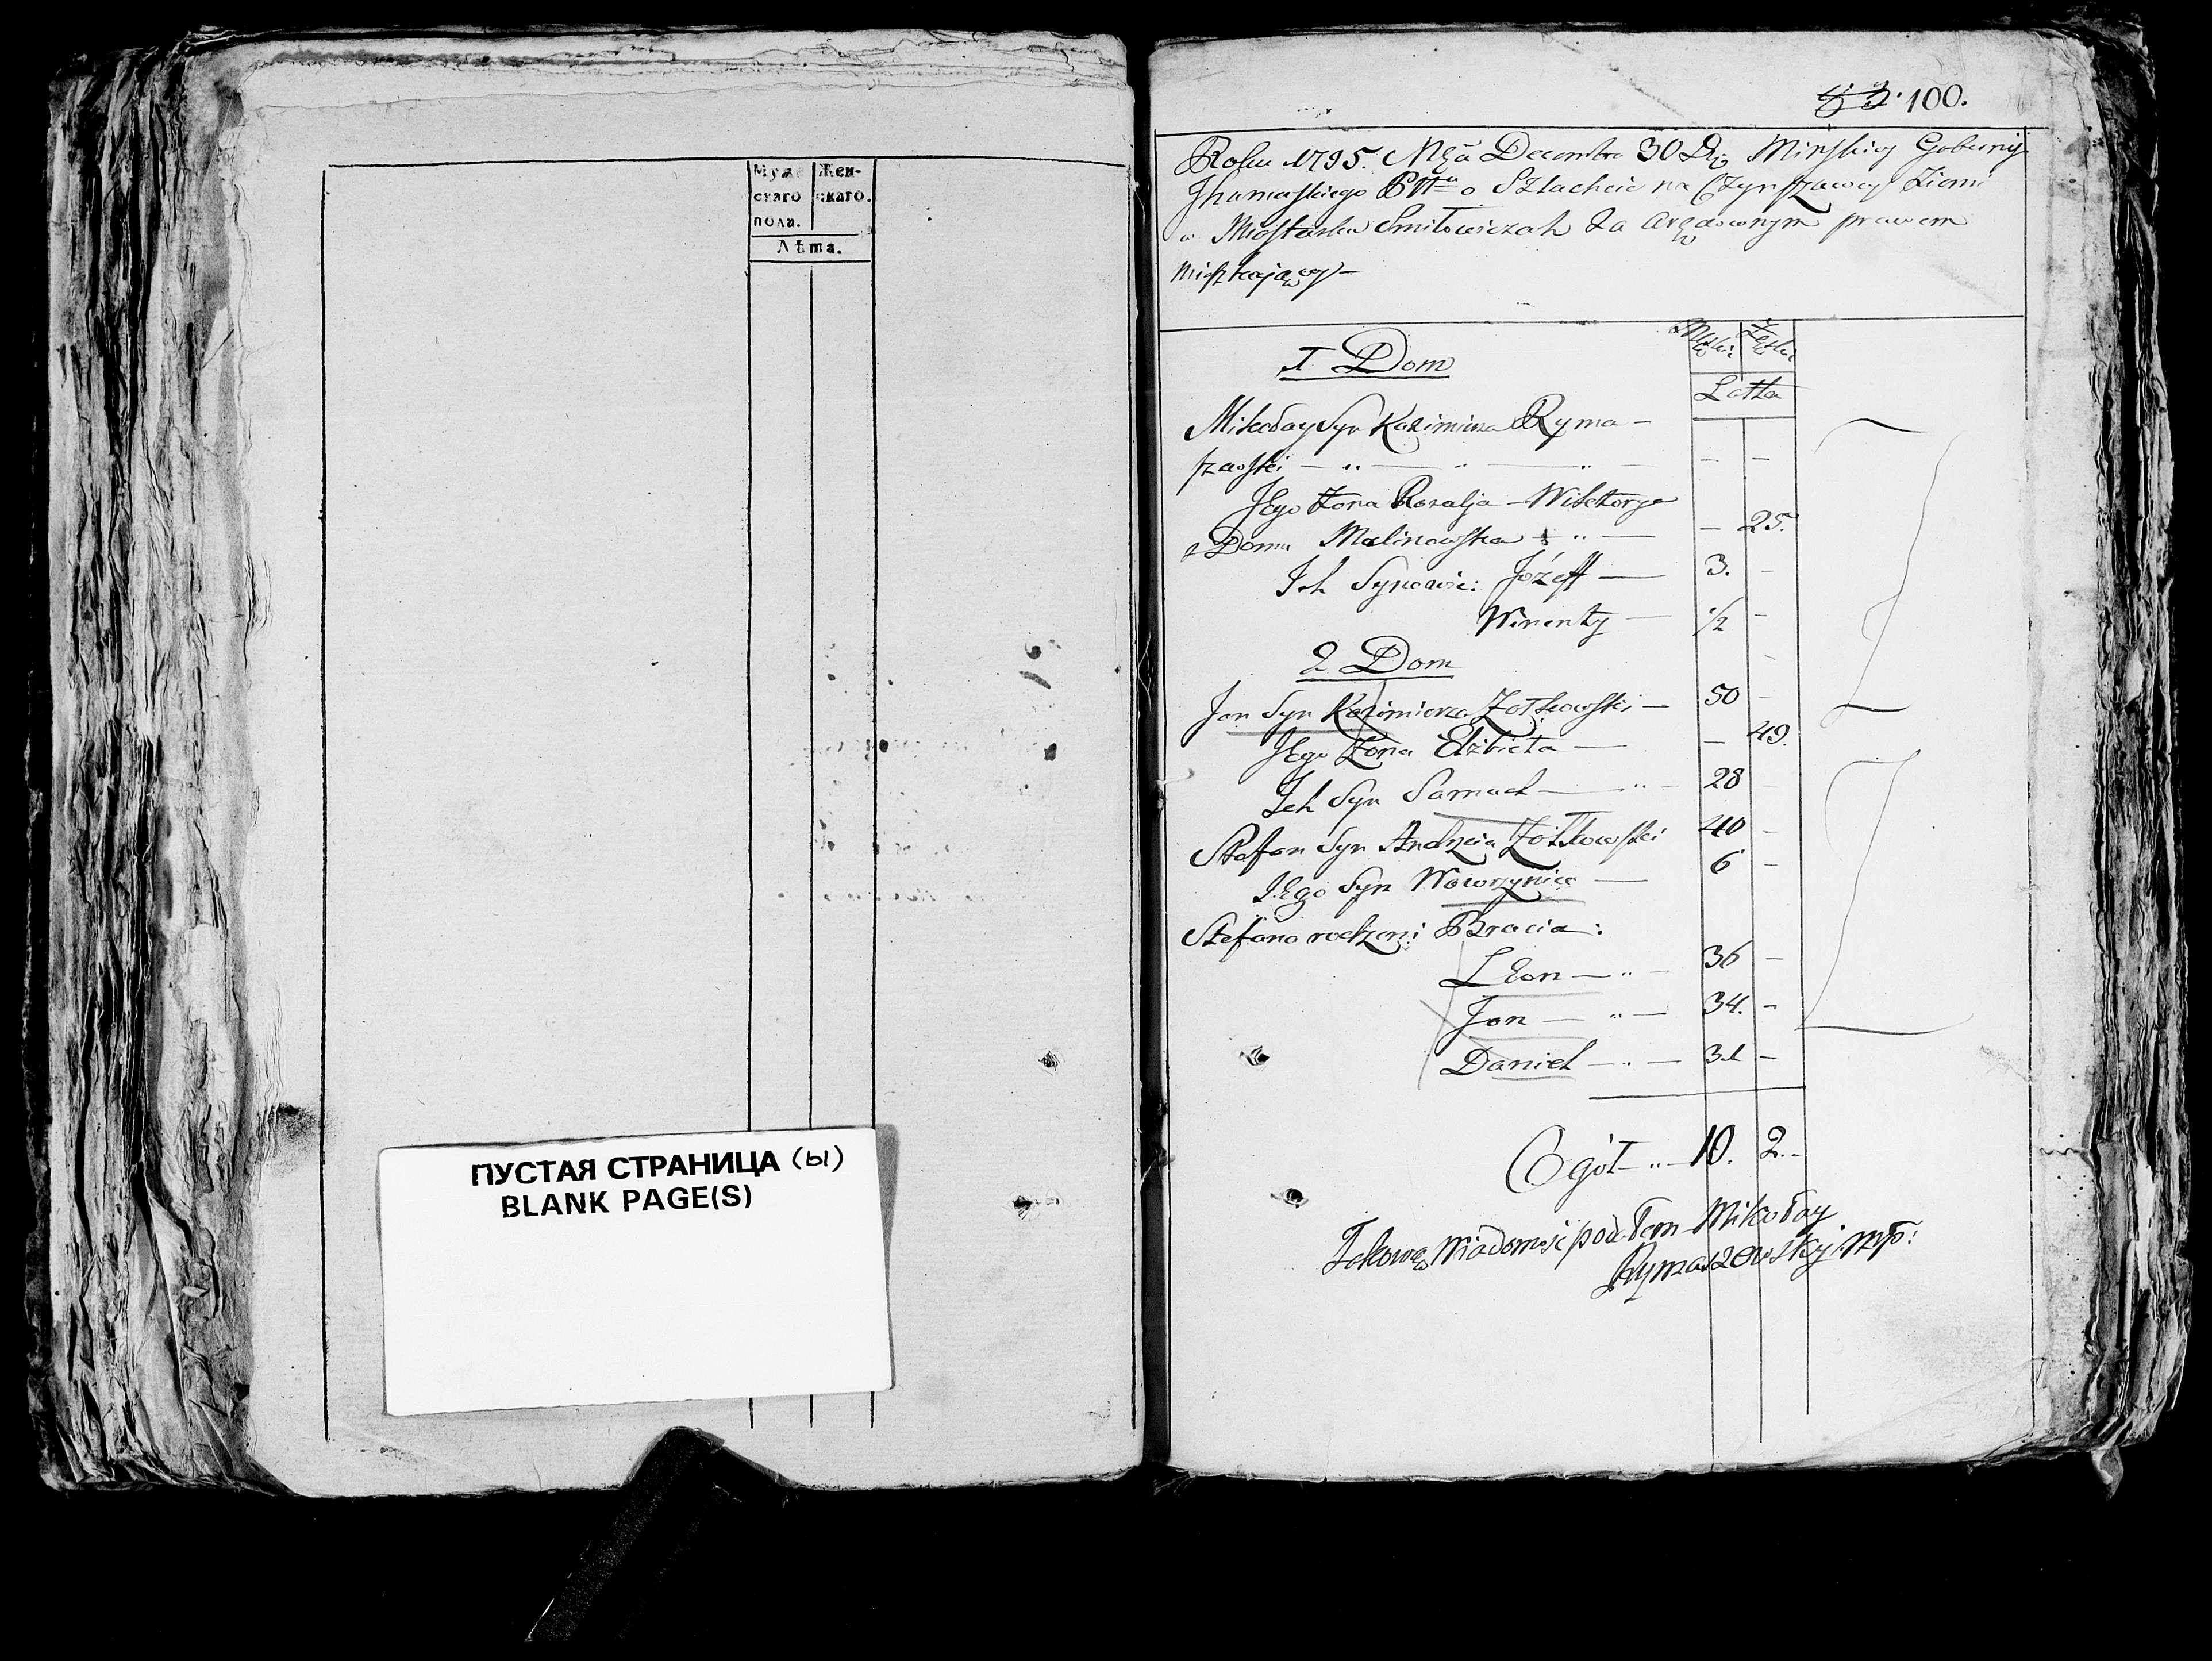 Муже- Жен-
скаго скаго.
пола.
Лѣта.
ПУСТАЯ СТРАНИЦА (ы)
BLANK PAGE(S)
100.
Roku 1795. Mca Decembra 30 Dnia Minskiey Guberniy
Jhumenskiego Pttu o Szlachcie na Czynszowey Ziemi
w Miasteczku Smiłowiczach za Arędownym prawem
Mieszkaiącey —
Męskie Żeńskie
1 Dom
Latta
Mikołay Syn Kazimierza Ryma-
szewski — „ — „ — „ — — —
Jego Żona Rozalja Wiktorya
z Domu Malinowska „ — — 25.
Ich Synowie: Józeff — 3. —
Wincenty — 1/2 —
2 Dom —
Jan Syn Kazimierza Żołkowski — 50 —
Jego Żona Elżbieta — — 49.
Ich Syn Samuel — „ — 28
Stefan Syn Andrzeia Żołkowski 40 —
Jego Syn Wawrzyniec — 6 —
Stefana rodzeni Bracia:
Leon — „ — 36 —
Jan — „ — 34. —
Daniel — „ — 31 —
Ogół „ — 10. 2. -
Takową Wiadomość podałem Mikołay
Rymaszewsky mp: